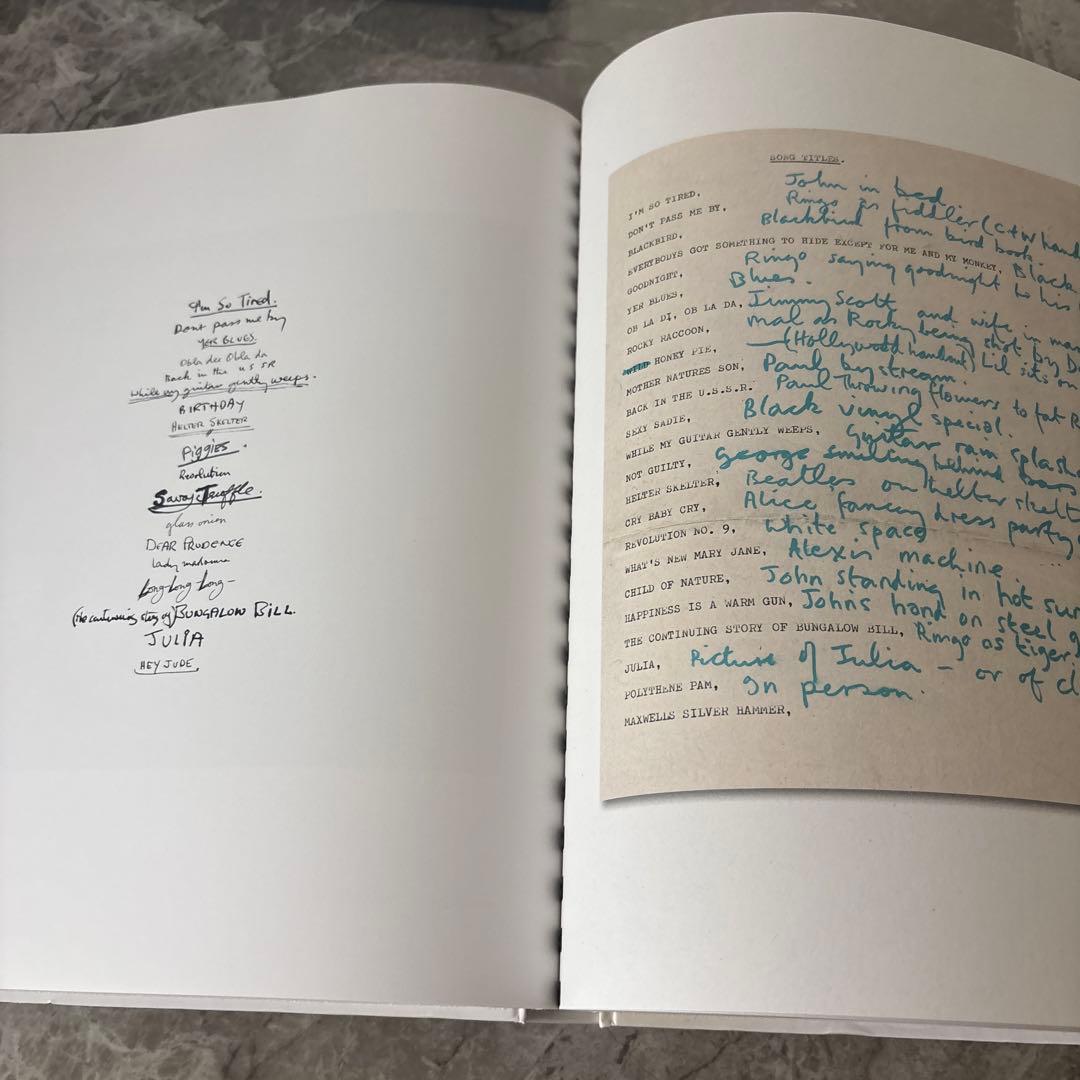 I'm So Tired.
Dont pass me by
YER BLUES.
Obla dee Obla da
Back in the US SR
While my guitar gently weeps.
BIRTHDAY
HELTER SKELTER
Piggies.
Revolution
Savoy Truffle.
glass onion
DEAR PRUDENCE
lady madonna
Long-Long Long-
(the continuing story of) BUNGALOW BILL.
JULIA
HEY JUDE.
SONG TITLES.
I'M SO TIRED, John in bed
DON'T PASS ME BY, Ringo as fiddler (C+W hand
BLACKBIRD, Blackbird from bird book.
EVERYBODYS GOT SOMETHING TO HIDE EXCEPT FOR ME AND MY MONKEY, Black
GOODNIGHT, Ringo saying goodnight to his
YER BLUES, Blues.
OB LA DI, OB LA DA, Jimmy Scott and wife in
ROCKY RACCOON, Mal as Rocky being shot by
WILD HONEY PIE, (Hollywood handout) Lil sits on
MOTHER NATURES SON, Paul by stream.
BACK IN THE U.S.S.R. Paul throwing flowers to fat
SEXY SADIE, Black vinyl special.
WHILE MY GUITAR GENTLY WEEPS, Guitar rain
NOT GUILTY, George smiling behind bars
HELTER SKELTER, Beatles on helter
CRY BABY CRY, Alice fancy dress party
REVOLUTION NO. 9, White space
WHAT'S NEW MARY JANE, Alexin machine
CHILD OF NATURE, John standing in hot
HAPPINESS IS A WARM GUN, Johns hand on steel
THE CONTINUING STORY OF BUNGALOW BILL, Ringo as tiger
JULIA, Picture of Julia – or of
POLYTHENE PAM, In person.
MAXWELLS SILVER HAMMER,